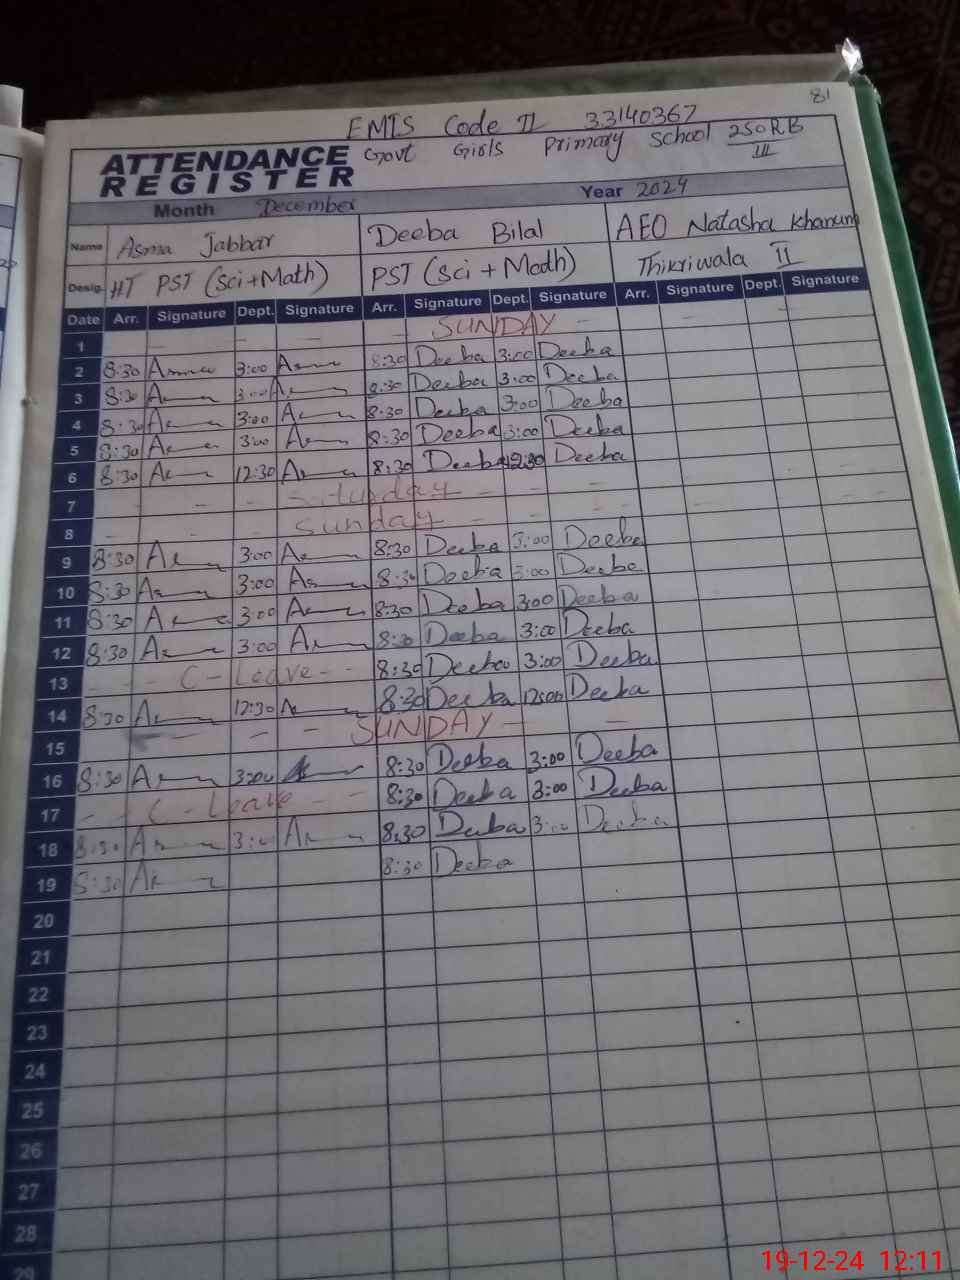 81
EMIS Code II 33140367
ATTENDANCE REGISTER Govt Girls Primary School 250 RB III
Month December Year 2024
Name Asma Jabbar Deeba Bilal AEO Natasha Khanum
Desig. HT PST (Sci+Math) PST (Sci + Math) Thikriwala II
Date Arr. Signature Dept. Signature Arr. Signature Dept. Signature Arr. Signature Dept. Signature
1 SUNDAY
2 8:30 3:00 8:30 Deeba 3:00 Deeba
3 8:30 3:00 8:30 Deeba 3:00 Deeba
4 8:30 3:00 8:30 Deeba 3:00 Deeba
5 8:30 3:00 8:30 Deeba 3:00 Deeba
6 8:30 12:30 8:30 Deeba 12:30 Deeba
7 Saturday
8 Sunday
9 8:30 3:00 8:30 Deeba 3:00 Deeba
10 8:30 3:00 8:30 Deeba 3:00 Deeba
11 8:30 3:00 8:30 Deeba 3:00 Deeba
12 8:30 3:00 8:30 Deeba 3:00 Deeba
13 C-Leave 8:30 Deeba 3:00 Deeba
14 8:30 12:30 8:30 Deeba 12:00 Deeba
15 SUNDAY
16 8:30 3:00 8:30 Deeba 3:00 Deeba
17 C-Leave 8:30 Deeba 3:00 Deeba
18 8:30 3:00 8:30 Deeba 3:00 Deeba
19 8:30 8:30 Deeba
20
21
22
23
24
25
26
27
28
29
19-12-24 12:11